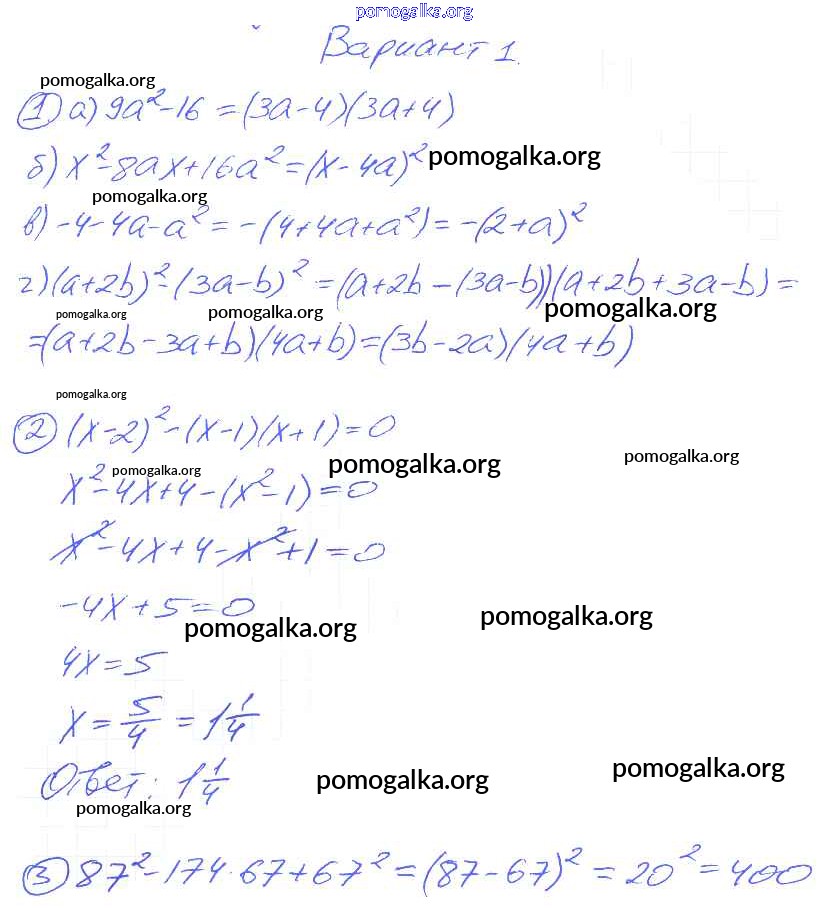 pomogalka.org
Вариант 1.
pomogalka.org
① а) 9a²-16 = (3a-4)(3a+4)
б) x²-8ax+16a² = (x-4a)² pomogalka.org
pomogalka.org
в) -4-4a-a² = -(4+4a+a²) = -(2+a)²
г) (a+2b)²-(3a-b)² = (a+2b-(3a-b))(a+2b+3a-b) =
pomogalka.org pomogalka.org pomogalka.org
=(a+2b-3a+b)(4a+b)=(3b-2a)(4a+b)
pomogalka.org
② (x-2)²-(x-1)(x+1)=0
pomogalka.org pomogalka.org pomogalka.org
x²-4x+4-(x²-1)=0
x²-4x+4-x²+1=0
-4x+5=0
pomogalka.org pomogalka.org
4x=5
x = 5/4 = 1 1/4
Ответ: 1 1/4
pomogalka.org pomogalka.org
pomogalka.org
③ 87²-174·67+67² = (87-67)² = 20² = 400